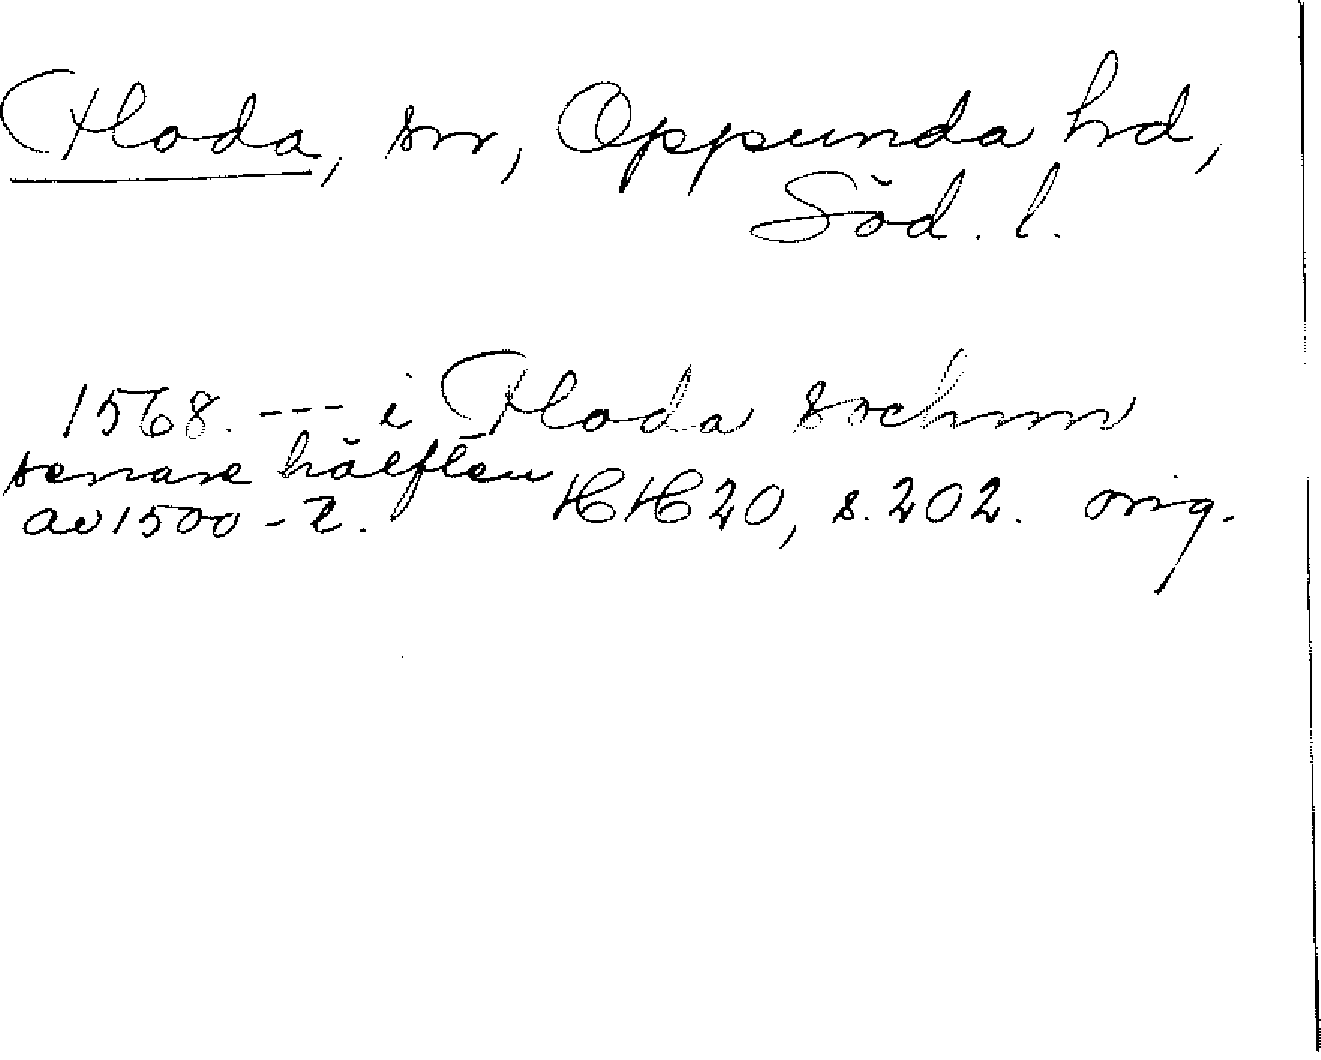 Floda, sn, Oppunda hd,
Söd. l.
1568. --- i Floda sochnn
senare hälften
av 1500-t. HH 20, s. 202. orig.